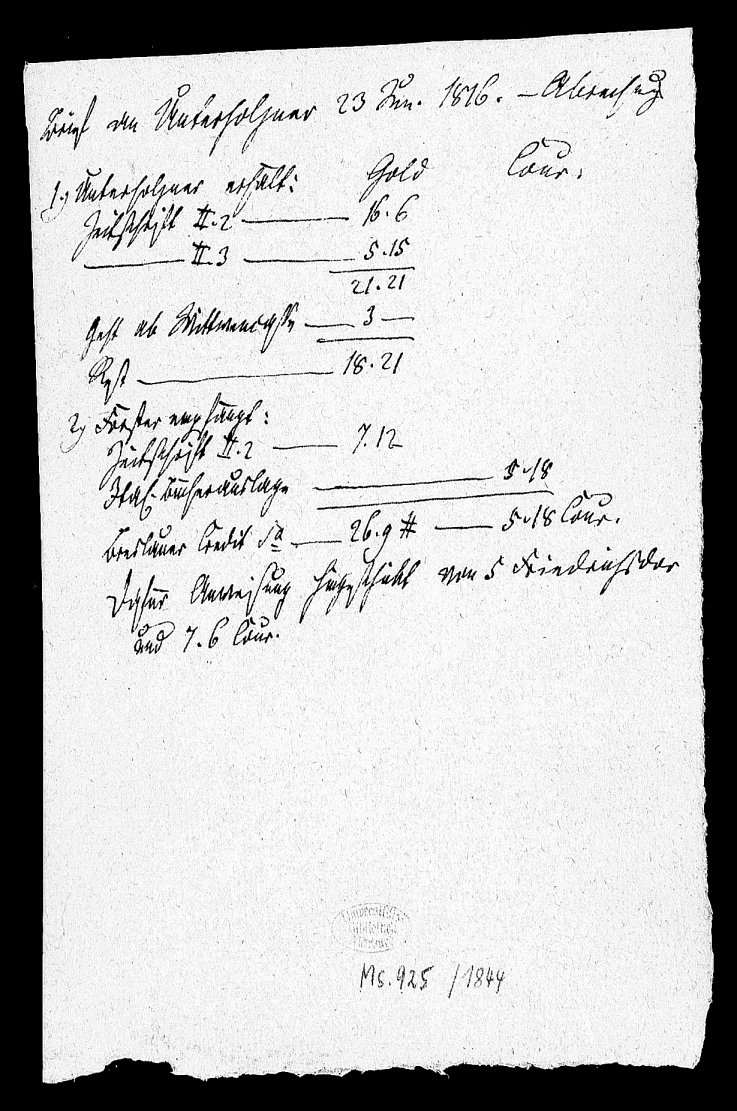 Brief an Unterholzner 23 Jun. 1816. – Abrechnung
Gold Cour.
1.) Unterholzner erhält:
Zeitschrift II.2 — 16.6
— II.3 — 5.15
21.21
Geht ab Wittwencasse — 3 —
Rest — 18.21
2) Förster empfängt:
Zeitschrift II.2 — 7.12
Ital. Bücherauslage — 5.18
Breslauer Credit Sa — 26.9 # — 5.18 Cour.
Dafür Anweisung hingeschickt von 5 Friedrichsdor
und 7.6 Cour.
Ms. 925 / 1844